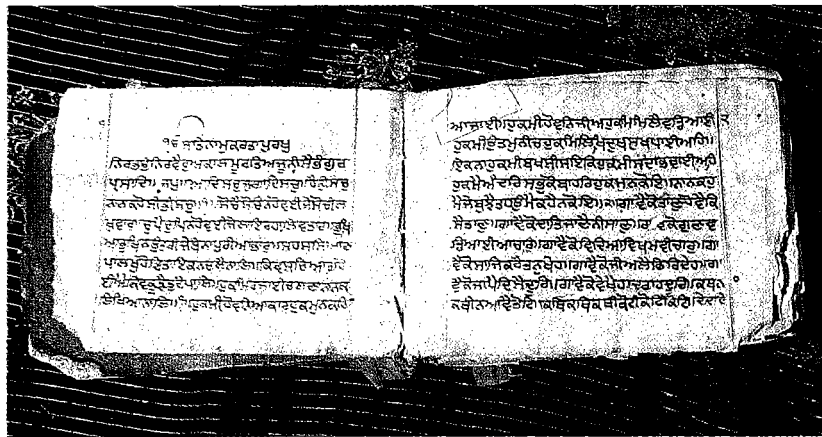 ੴ ਸਤਿਨਾਮੁਕਰਤਾਪੁਰਖੁ
ਨਿਰਭਉਨਿਰਵੈਰੁਅਕਾਲਮੂਰਤਿਅਜੂਨੀਸੈਭੰਗੁਰ
ਪ੍ਰਸਾਦਿ॥ਜਪੁ॥ਆਦਿਸਚੁਜੁਗਾਦਿਸਚੁ॥ਹੈਭੀਸਚੁ
ਨਾਨਕਹੋਸੀਭੀਸਚੁ॥ਸੋਚੈਸੋਚਿਨਹੋਵਈਜੇਸੋਚੀਲ
ਖਵਾਰ॥ਚੁਪੈਚੁਪਨਹੋਵਈਜੇਲਾਇਰਹਾਲਿਵਤਾਰ॥ਭੁਖਿ
ਆਭੁਖਨਉਤਰੀਜੇਬੰਨਾਪੁਰੀਆਭਾਰ॥ਸਹਸਸਿਆਣ
ਪਾਲਖਹੋਹਿਤਾਇਕਨਚਲੈਨਾਲਿ॥ਕਿਵਸਚਿਆਰਾਹੋ
ਈਐਕਿਵਕੂੜੈਤੁਟੈਪਾਲਿ॥ਹੁਕਮਿਰਜਾਈਚਲਣਾਨਾਨਕ
ਲਿਖਿਆਨਾਲਿ॥੧॥ਹੁਕਮੀਹੋਵਨਿਆਕਾਰਹੁਕਮੁਨਕਹਿ
ਆਜਾਈ॥ਹੁਕਮੀਹੋਵਨਿਜੀਅਹੁਕਮਿਮਿਲੈਵਡਿਆਈ॥
ਹੁਕਮੀਉਤਮੁਨੀਚੁਹੁਕਮਿਲਿਖਿਦੁਖਸੁਖਪਾਈਅਹਿ॥
ਇਕਨਾਹੁਕਮੀਬਖਸੀਸਇਕਿਹੁਕਮੀਸਦਾਭਵਾਈਅਹਿ॥
ਹੁਕਮੈਅੰਦਰਿਸਭੁਕੋਬਾਹਰਿਹੁਕਮਨਕੋਇ॥ਨਾਨਕਹੁ
ਕਮੈਜੇਬੁਝੈਤਹਉਮੈਕਹੈਨਕੋਇ॥੨॥ਗਾਵੈਕੋਤਾਣੁਹੋਵੈਕਿ
ਸੈਤਾਣੁ॥ਗਾਵੈਕੋਦਾਤਿਜਾਣੈਨੀਸਾਣੁ॥ਗਾਵੈਕੋਗੁਣਵ
ਡਿਆਈਆਚਾਰੁ॥ਗਾਵੈਕੋਵਿਦਿਆਵਿਖਮੁਵੀਚਾਰੁ॥ਗਾ
ਵੈਕੋਸਾਜਿਕਰੇਤਨੁਖੇਹ॥ਗਾਵੈਕੋਜੀਅਲੈਫਿਰਿਦੇਹ॥ਗਾ
ਵੈਕੋਜਾਪੈਦਿਸੈਦੂਰਿ॥ਗਾਵੈਕੋਵੇਖੈਹਾਦਰਾਹਦੂਰਿ॥ਕਥਨਾ
ਕਥੀਨਆਵੈਤੋਟਿ॥ਕਥਿਕਥਿਕਥੀਕੋਟੀਕੋਟਿਕੋਟਿ॥ਦੇਦਾਦੇ